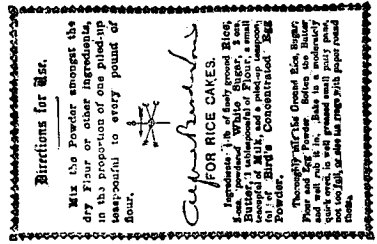 Directions for Use.
Mix the Powder amongst the
dry Flour or other ingredients,
in the proportion of one piled-up
teaspoonful to every pound of
flour.
Alfred Bird & Sons
FOR RICE CAKES.
Ingredients: ¼-lb. of fine ground Rice,
3 ozs. powdered White Sugar, 2 ozs.
Butter, 1 tablespoonful of Flour, a small
teacupful of Milk, and a piled-up teaspoon-
ful of Bird's Concentrated Egg
Powder.
Thoroughly mix the Ground Rice, Sugar,
Flour and Egg Powder. Soften the Butter
and well rub it in. Bake in a moderately
quick oven, in well greased small patty pans,
not too full, or else tin rings with paper round
them.